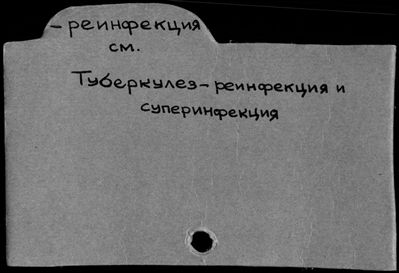 - реинфекция
см.
Туберкулез - реинфекция и
суперинфекция